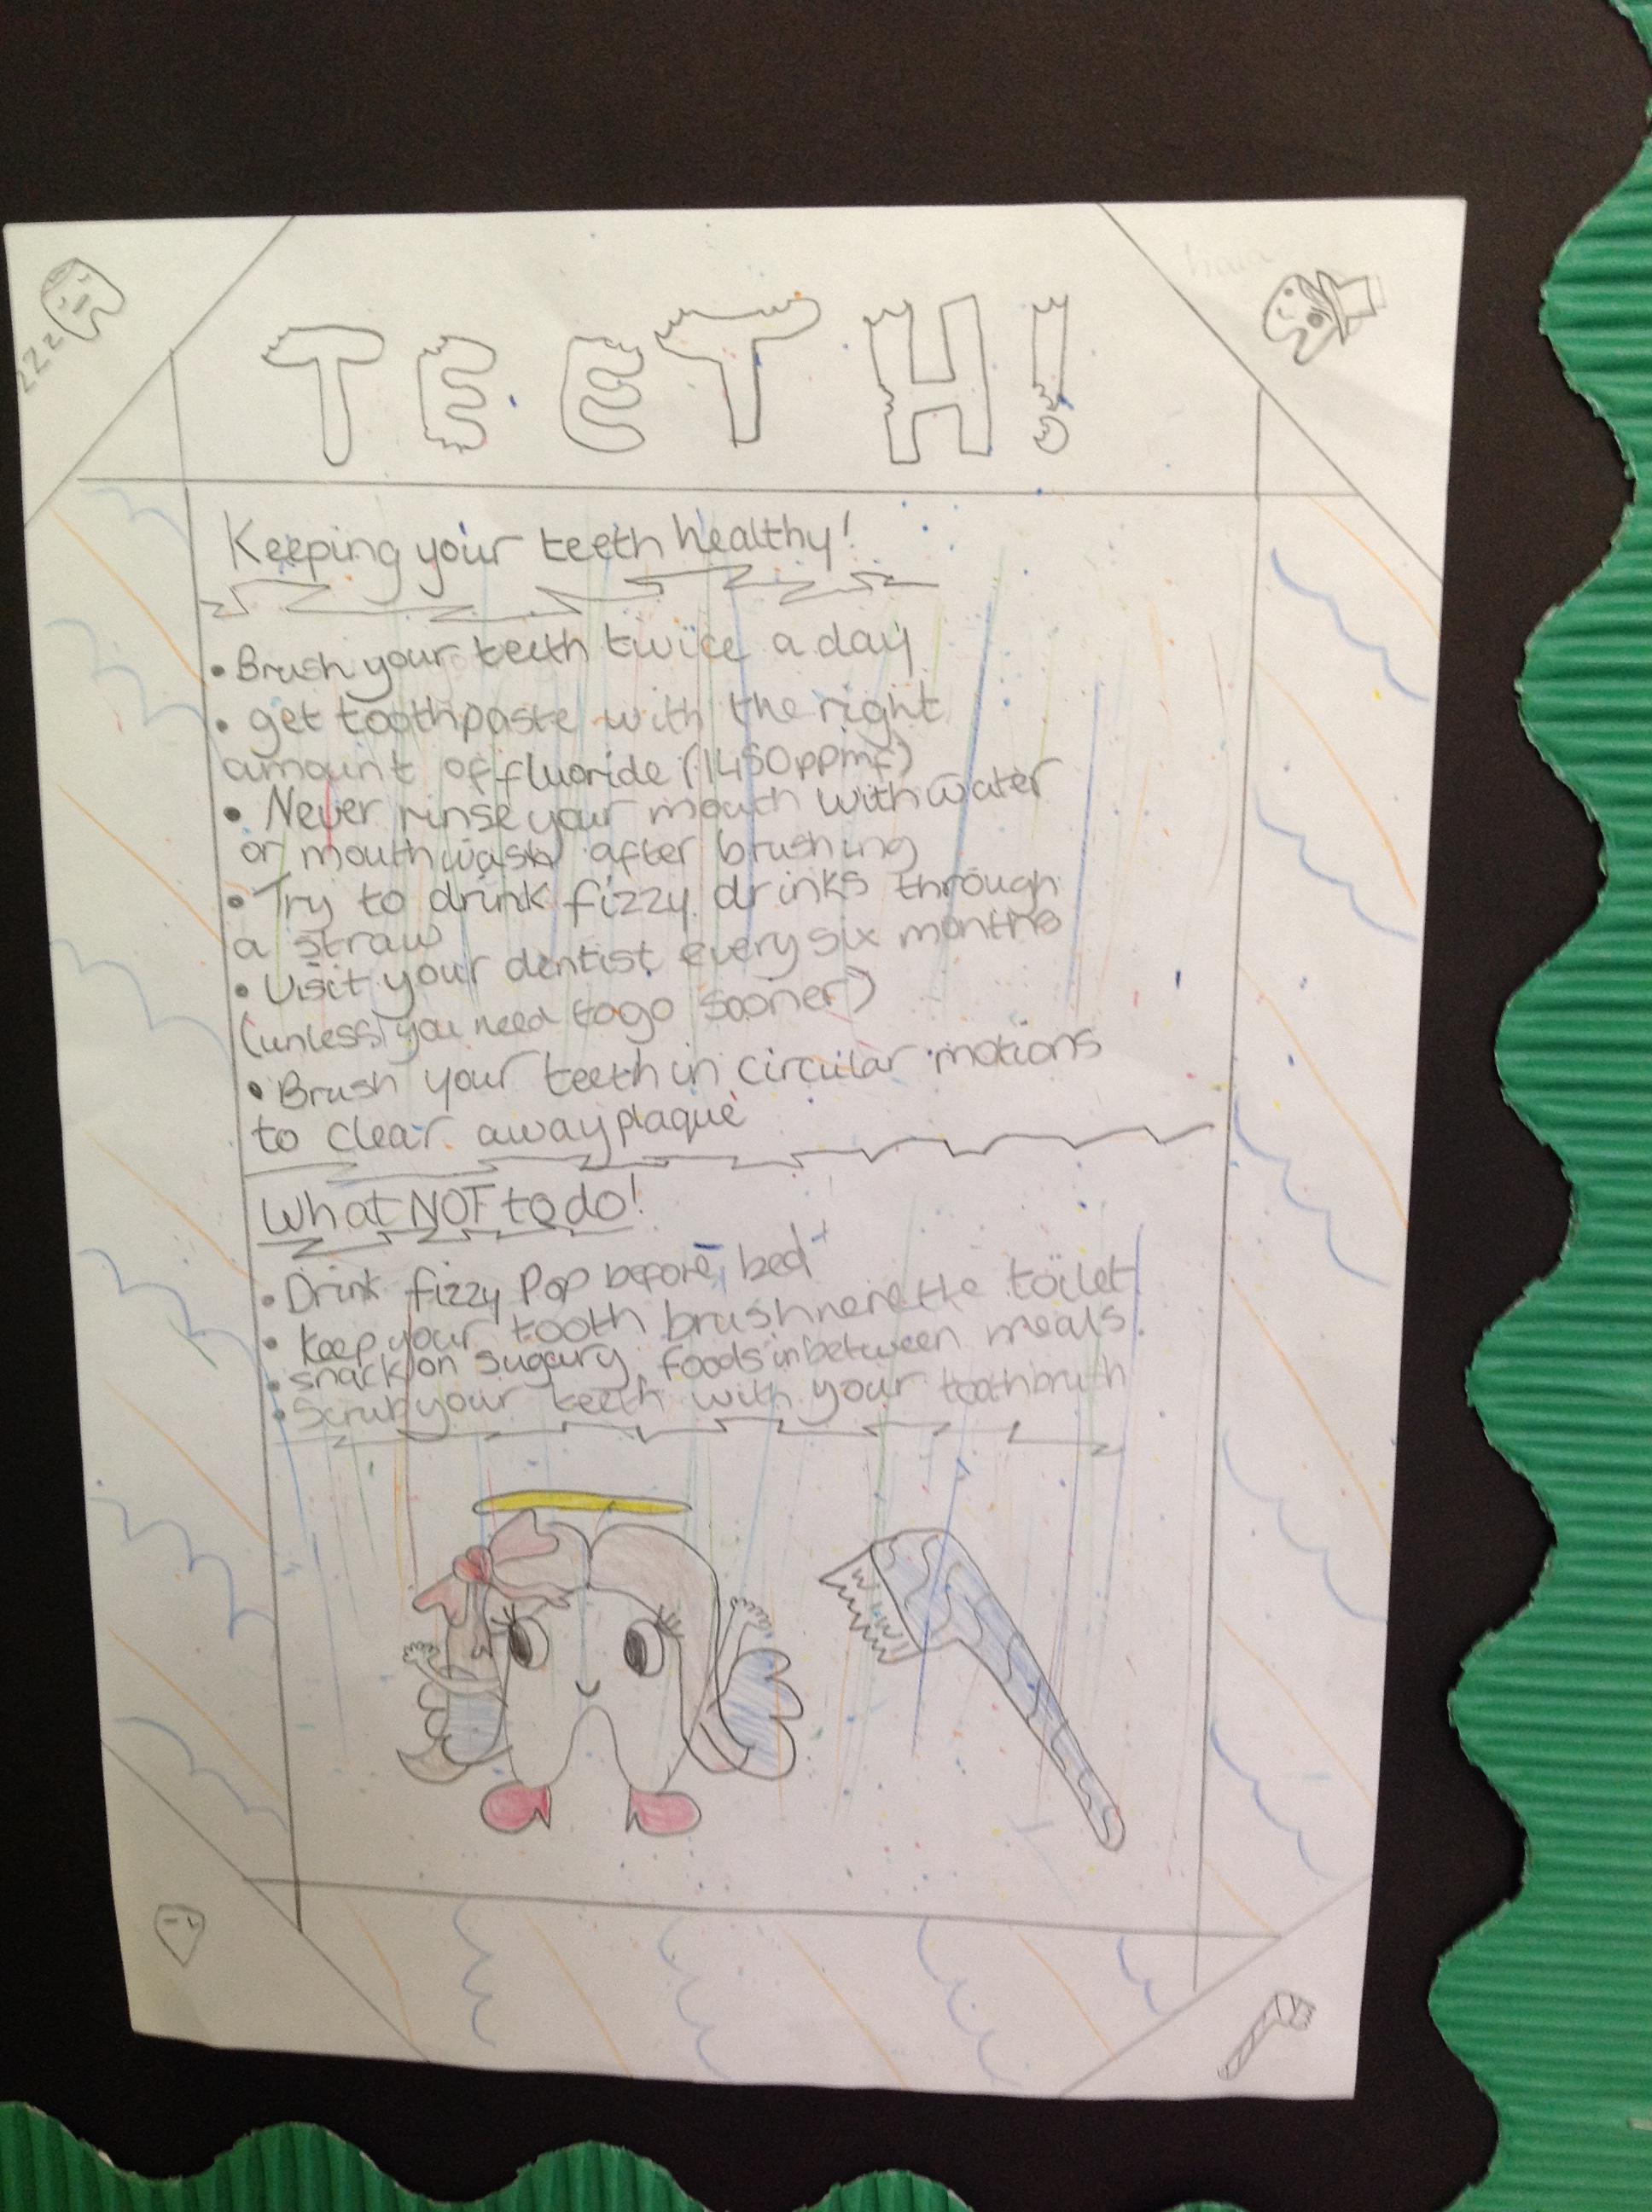 zzz
TEETH!
Keeping your teeth healthy!
• Brush your teeth twice a day
• get toothpaste with the right
amount of fluoride (1450ppmf)
• Never rinse your mouth with water
or mouthwash after brushing
• Try to drink fizzy drinks through
a straw
• Visit your dentist every six months
(unless you need to go sooner)
• Brush your teeth in circular motions
to clear away plaque
What NOT to do!
• Drink fizzy Pop before bed
• Keep your tooth brush nere the toilet
• snack on sugary foods in between meals.
• Scrub your teeth with your toothbruth